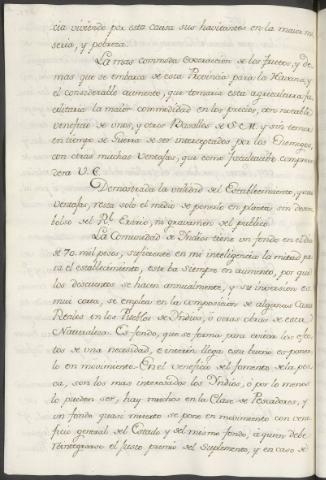 cia viviendo por esta causa sus havitantes en la maior mi
seria, y pobreza.
La mas commoda Exacsión de los fuetes, y de
mas que se embarca de esta Provincia para la Havana, y
el considerable aumento, que tomaria esta agricultura fa
cilitaria la maior commodidad en los precios, con notable
veneficio de unos, y otros Vasallos de S. M. y sin temor
en tiempo de Guerra de ser interceptados por los Enemigos,
con otras muchas Ventajas, que como facultativo compren
derá V. E.
Demostrada la utilidad del Establecimiento, y sus
ventajas, resta solo el medio de ponerlo en planta sin desem
bolso del Rl. Erario, ni gravamen del publico.
La Comunidad de Indios tiene un fondo en el dia
de 70. mil pesos, suficiente en mi inteligencia la mitad pa
ra el establecimiento, este ba siempre en aumento, por que
los descuentos se hacen annualmente, y su inversion es
mui corta, se emplea en la composicion de algunas Casas
Reales en los Pueblos de Indios, ó otras obras de esta
Naturaleza. Es fondo, que se forma para
de una necesidad, e interin llega este es poner
lo en movimiento. En el veneficio del fomento de la pes
ca, son los mas interesados los Indios, ó por lo menos
lo pueden ser, hay muchos en la Clase de Pescadores, y
un fondo quasi muerto se pone en movimiento con vene
ficio general del Estado y del mismo fondo, á quien debe
Reintegrarse el justo premio del Suplemento, y en caso de